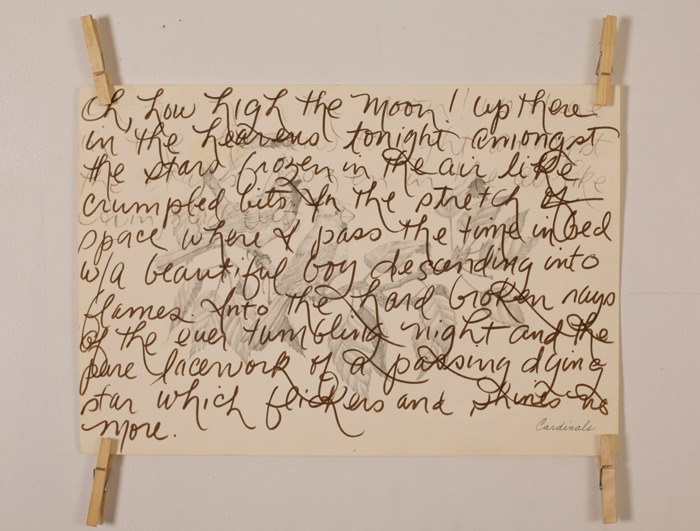 Oh, how high the moon! up there
in the heavens tonight amongst
the stars frozen in the air like
crumpled bits. In the stretch of
space where I pass the time in bed
w/a beautiful boy descending into
flames. Into the hard broken rays
of the ever tumbling night and the
pure lacework of a passing dying
star which flickers and shines no
more.
Cardinals